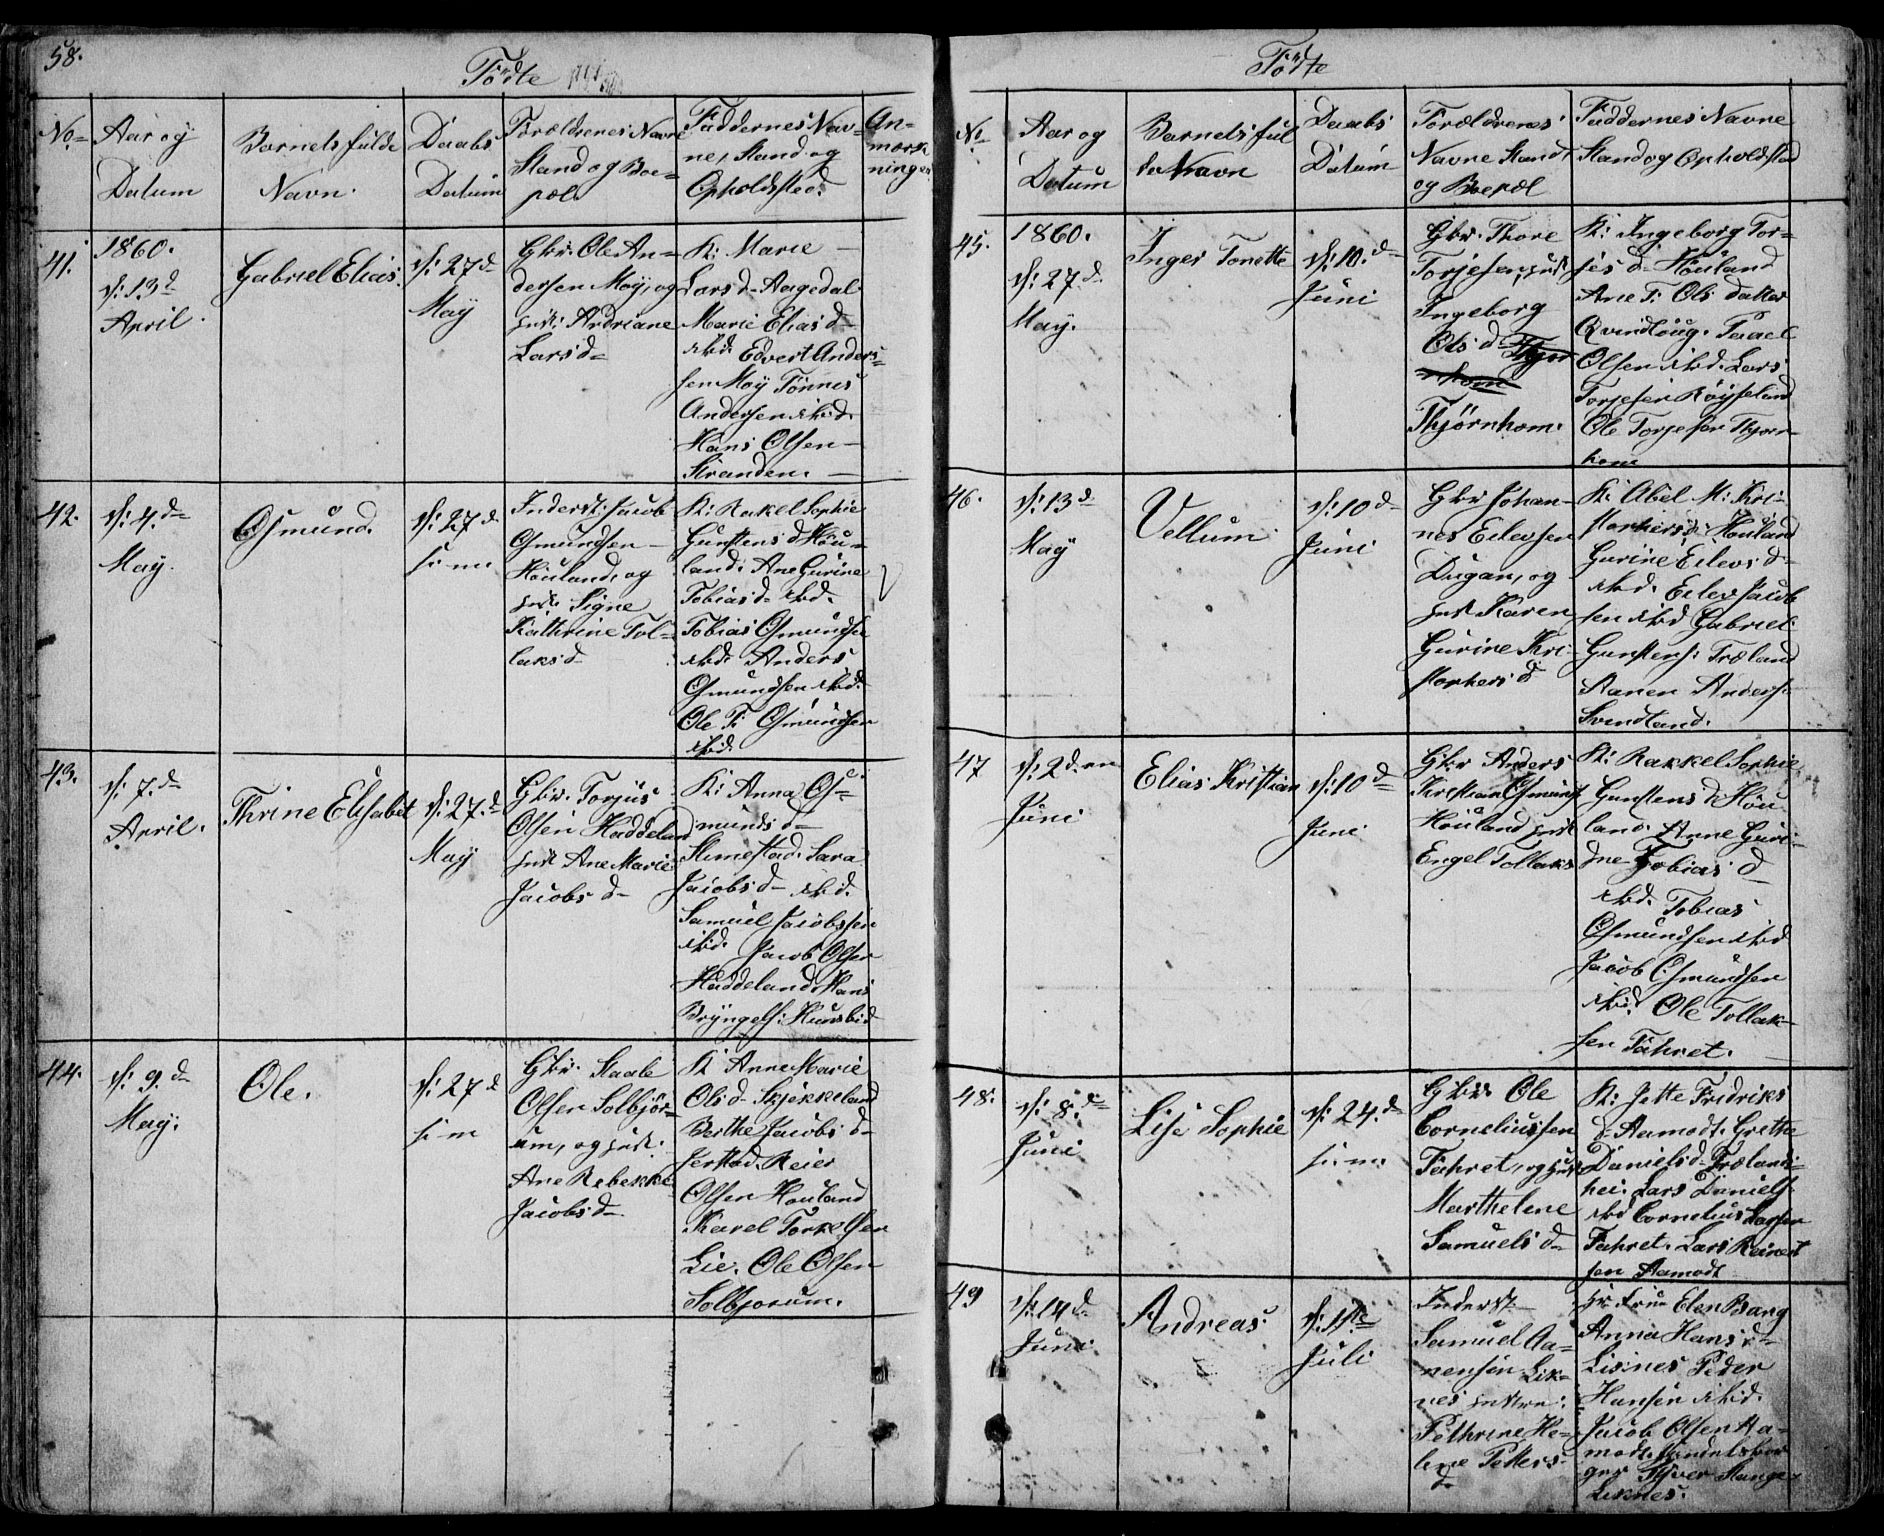 58.
Födte
No
Aar og
Datum
Barnets fulde
Navn.
Daabs
Datum
Forældrenes Navne
Stand og Boe-
pæl.
Faddernes Nav-
ne, Stand og
Opholdsted.
An-
mærk
ninger
41.
1860.
d: 13d
April.
Gabriel Elias.
d: 27d
May
Gbr. Ole An-
dersen Moÿ, og
Ardriane
Larsd-
K: Marie
Larsd- Aagedal
Marie Eliasd-
Edvert Anders-
sen Moÿ Tönnes
Andersen
Hans Olsen-
Stranden.
42.
d: 4.d-
May.
Osmund.
d: 27d
s: m
Inderst: Jacob
Osmundsen
Höuland, og
Signe
Kathrine Tol-
laksd-
K: Rakel Sophie
Gunstensd Höu-
land: Ane Gurine
Tobiasd-
Tobias Osmundse
Anders
Osmundsen
Ole T: Osmundsen
43.
d: 7.d-
April.
Thrine Elisabet
d: 27.d-
May
Gbr. Torjus
Olsen Haddeland
Ane Marie
Jacobsd-
K: Anna Os-
mundsd-
Stimestad: Sara
Jacobsd-
Samuel Jacobssen
Jacob Olsen
Haddeland Hans
Bryngels: Hunsbed
44.
d: 9.d-
May.
Ole.
d: 27d
s: m
Gbr. Staale
Olsen Solbjör-
um, og
Ane Rebekke
Jacobsd-
K: Anne Marie
Olsd- Skjekkeland
Berthe Jacobsd-
Jerstad. Reier
Olsen Houland
Karel Torkelsen
Lie. Ole Olsen
Solbjorum.
Födte
No
Aar og
Datum
Barnets ful
de Navn
Daabs
Datum
Forældrenes
Navne Stand
og Boepæl
Faddernes Navne
Stand og Opholdsted
45.
1860.
d: 27d-
May.
Inger Tonette
d: 10.d-
Juni
Gbr. Thore
Torjesen,
Ingeborg
Olsd-
Thjørnhom.
K: Ingeborg Tor-
jesd- Höuland
Ane T: Ols datter
Qvindlaug. Paael
Olsen Lars
Torjesen Röyseland
Ole Torjesen Thjorn-
hom
46.
d: 13d
May
Vellum
d: 10d-
Juni
Gbr Johan-
nes Eilevsen
Dugan, og
Karen
Gurine Kri-
stophersd
K: Abel M: Kri-
stophersd: Höuland
Gurine Eilevsd-
Eilev Jacob
sen Gabriel
Gunstens: Træland
Aanen Anders-
Svindland.
47
d: 2d en
Juni
Elias Kristian
d: 10d-
Juni
Gbr Anders
Kristian Osmunds
Höuland
Engel Tollaks
K: Rakkel Sophie
Gunstensd: Höu
land. Anne Guri-
ne Tobiasd-
Tobias
Osmundsen
Jacob Osmundsen
Ole Tollak-
sen Fahret.
48.
d: 8.d-
Juni
Lise Sophie
d: 24.d-
s: m.
Gbr: Ole
Corneliussen
Fahret, og
Marthelene
Samuelsd-
K: Jette Fridriks
d- Aamodt. Grethe
Danielsd- Træland-
hei. Lars Daniels
Cornelius Larsen
Fahret. Lars Reinert
sen Aamodt
49
d: 14d-
Juni.
Andreas.
d: 1te
Juli
Inderst
Samuel Aa-
nensen Lik-
nes
Pethrine He-
lene Petters-
d.
Frue Elen Bang
Anna Hansd-
Liknes Peder
Hansen
Jacob Olsen Aa-
modt,
Stange
Liknes.